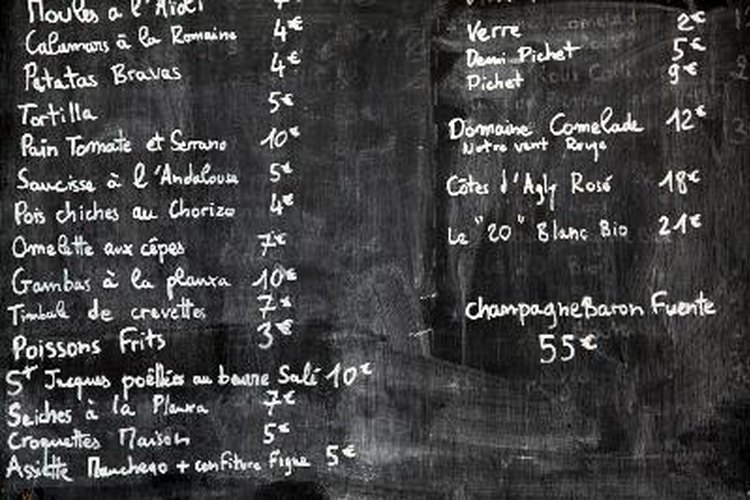 Moules a l'Aïoli
Calamars à la Romaine 4€
Patatas Bravas 4€
Tortilla 5€
Pain Tomate et Serrano 10€
Saucisse à l'Andalouse 5€
Pois chiches au Chorizo 4€
Omelette aux cèpes 7€
Gambas à la planxa 10€
Timbale de crevettes 7€
Poissons Frits 3€
St Jacques poëllées au beurre Salé 10€
Seiches à la Planxa 7€
Croquettes Maison 5€
Assiette Manchego + confiture Figue 5€
Verre 2€
Demi Pichet 5€
Pichet 9€
Domaine Comelade 12€
Notre vent Rouge
Côtes d'Agly Rosé 18€
Le "20" Blanc Bio 21€
Champagne Baron Fuente
55€